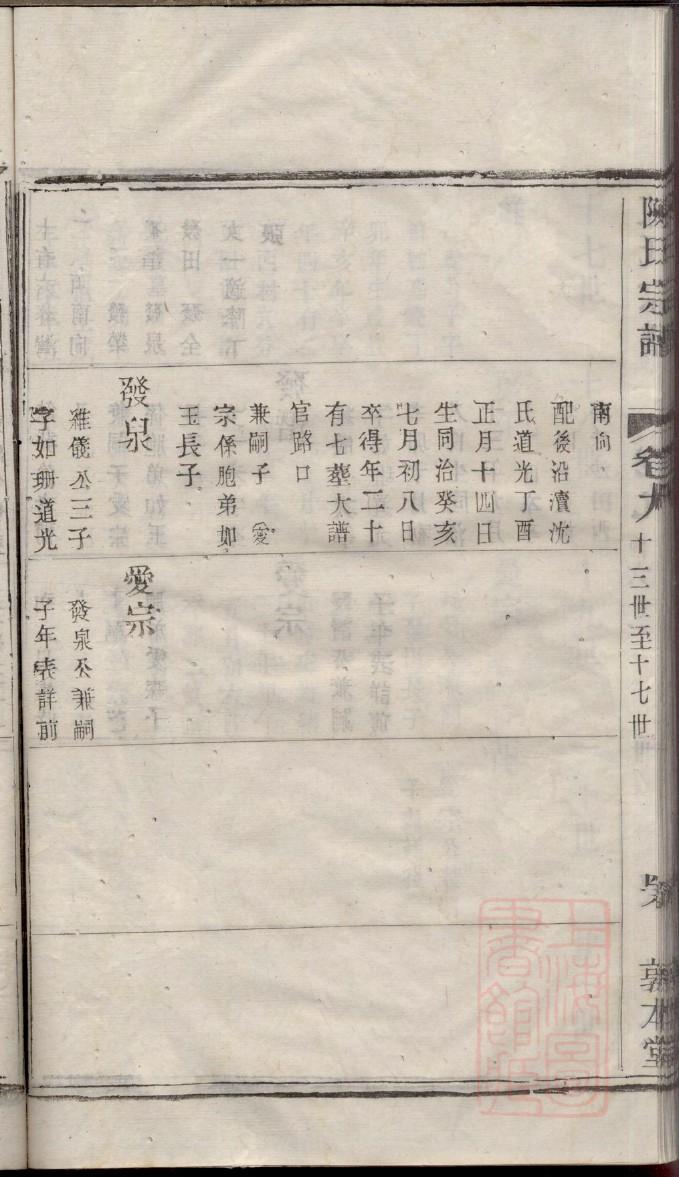 陳氏宗譜
卷九
十三世至十七世
敦本堂
南向
配後沿瀆沈
氏道光丁酉
正月十四日
生同治癸亥
七月初八日
卒得年二十
有七塟大譜
官路口
兼嗣子愛
宗係胞弟如
玉長子
發泉
維儀公三子
字如珊道光
愛宗
發泉公兼嗣
子年表詳前
上海圖書館藏